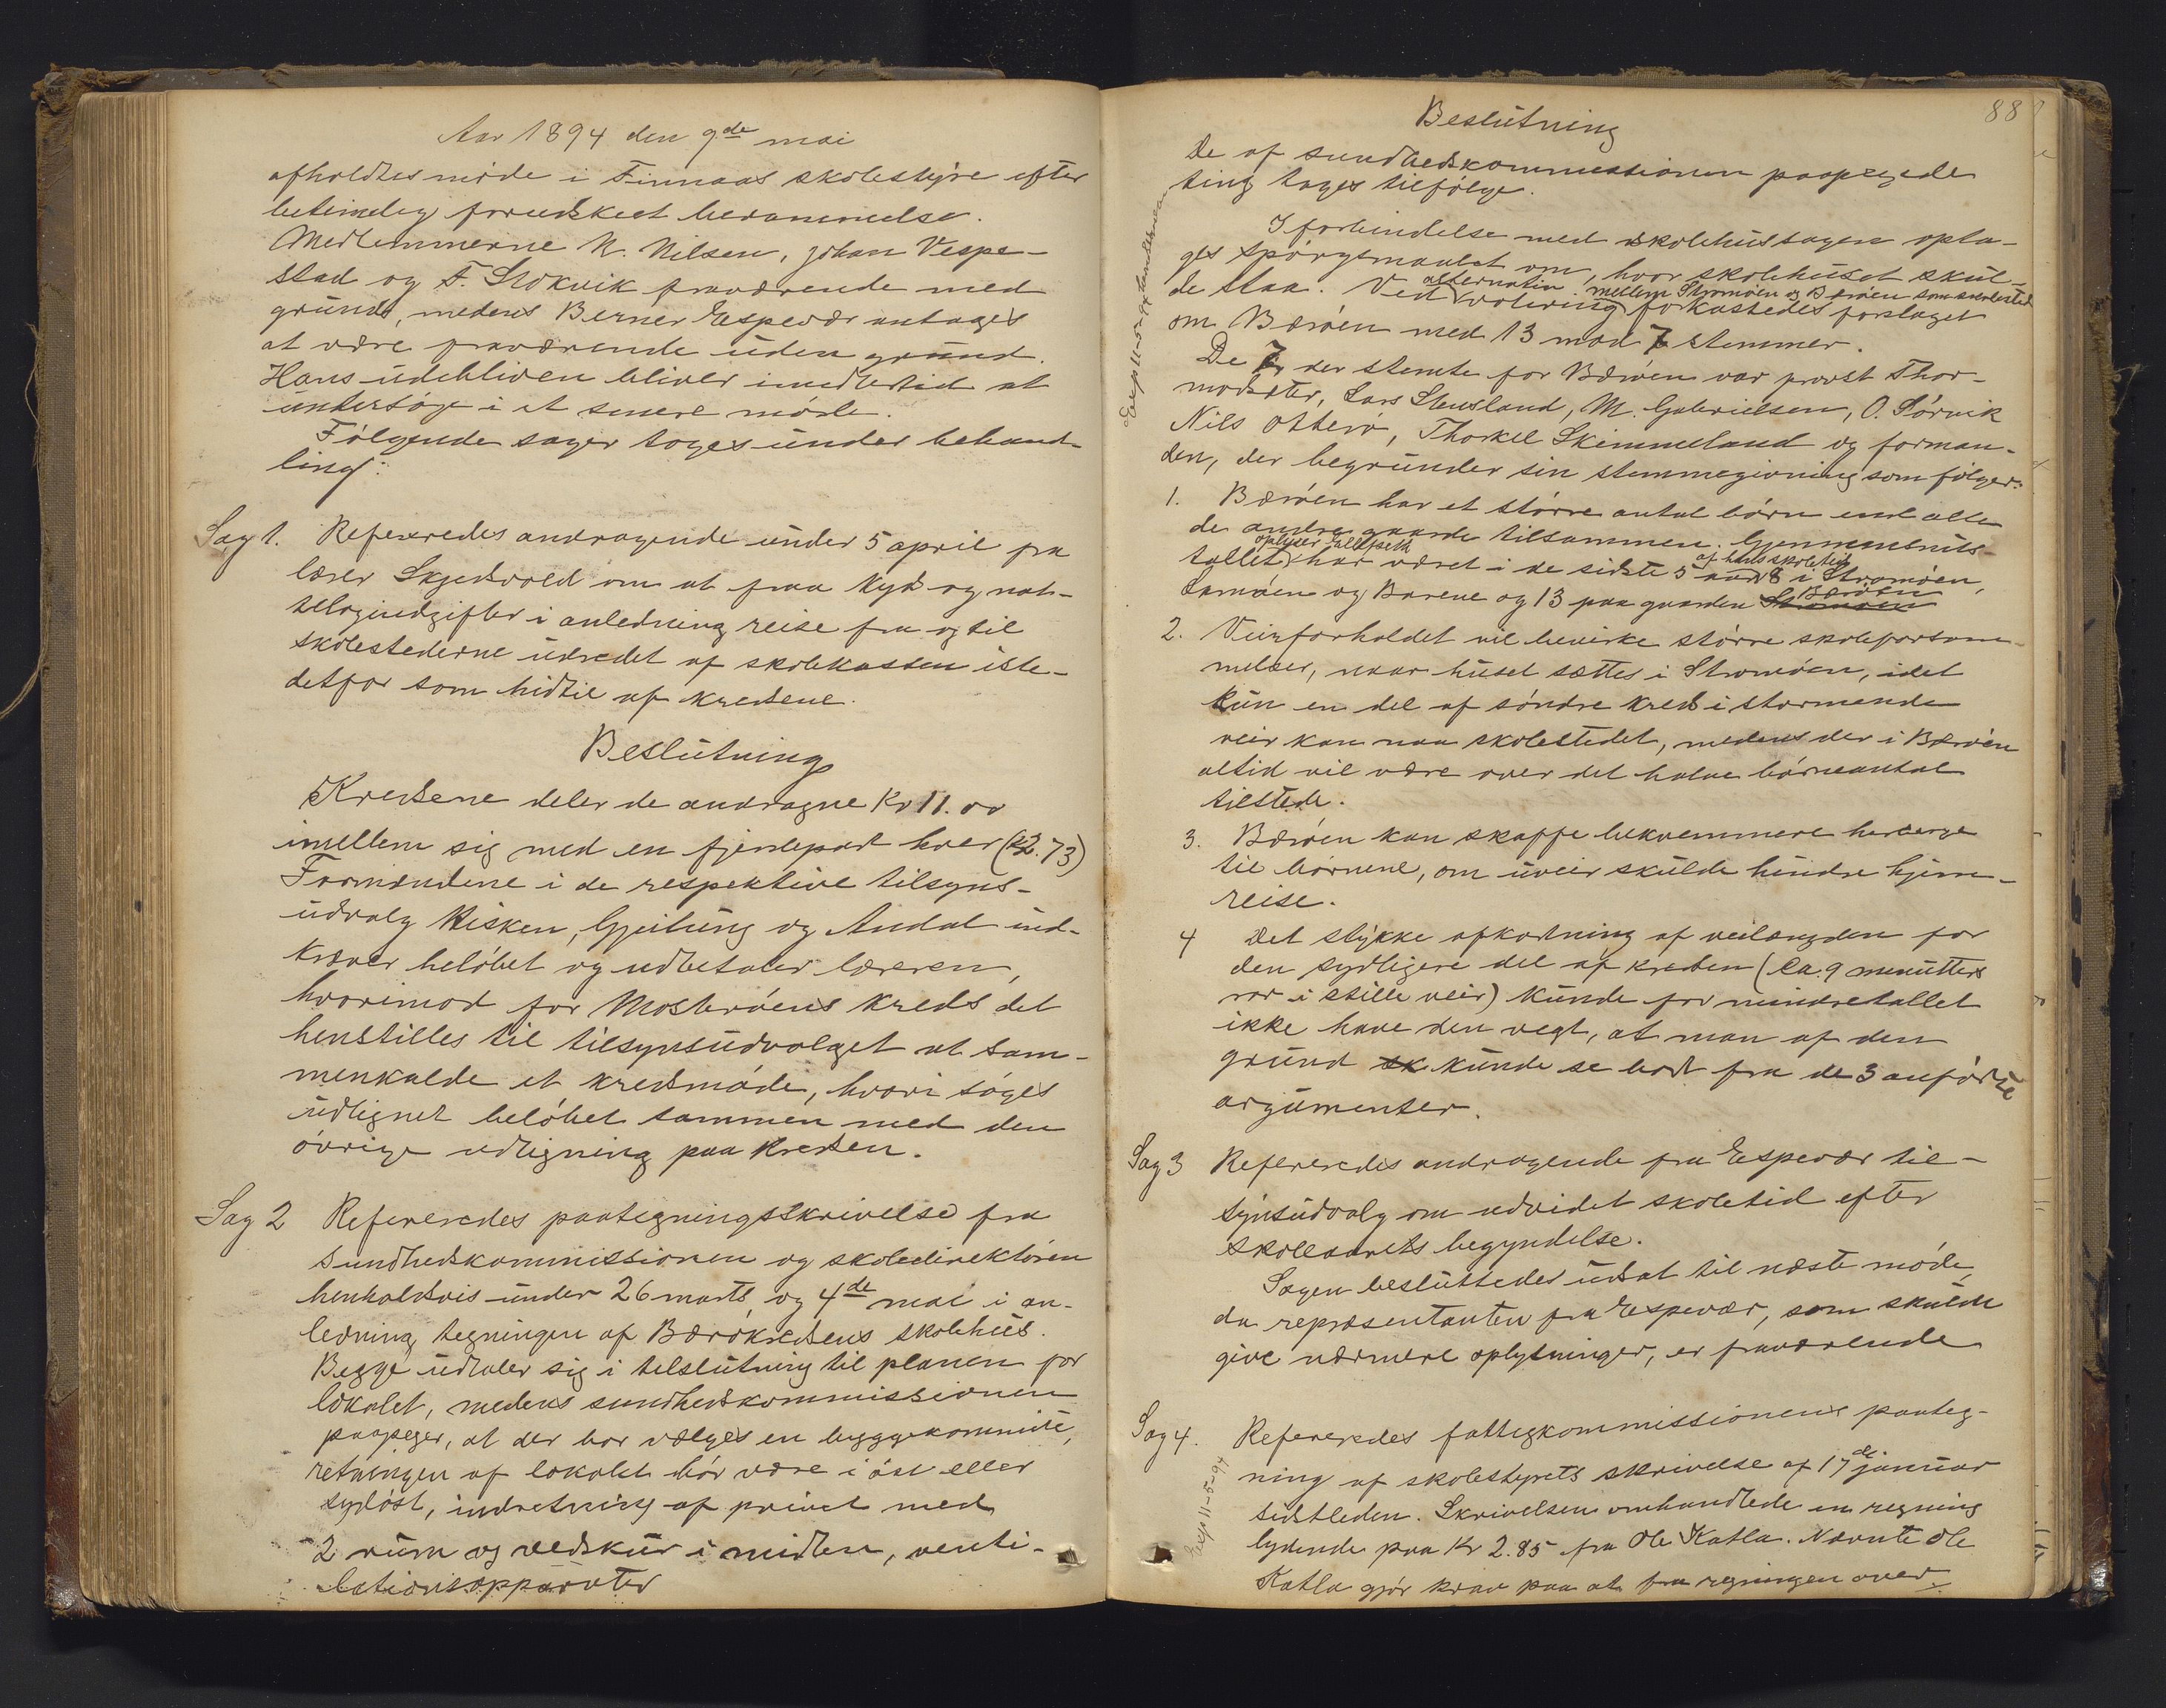 Aar 1894 den 9de mai
afholdtes møde i Finnaas skolestyre efter
betimelig forudskeet berammelse.
Medlemmerne N. Nilsen, Johan Vespe-
stad og F. Stokvik fraværende med
grund, medens Berner Espevær antages
at være fraværende uden grund.
Hans udebliven bliver imidlertid at
undersøge i et senere møde.
Følgende sager toges under behand-
ling:
Sag 1. Refereredes andragende under 5 april fra
lærer Skjedsvold om at faa kyds og nat-
telogiudgifter i anledning reise fra og til
skolestederne udredet af skolekassen iste-
detfor som hidtil af kredsene.
Beslutning
Kredsene deler de andragne Kr 11.00
imellem sig med en fjerdepart hver (Kr 2.73)
Formændene i de respektive tilsyns-
udvalg Hisken, Gjeitung og Andal ind-
kræver beløbet og udbetaler læreren,
hvorimod for Mosterøens kreds det
henstilles til tilsynsudvalget at sam-
menkalde et kredsmøde, hvori søges
udlignet beløbet sammen med den
øvrige udligning paa kredsen.
Sag 2 Refereredes paategningsskrivelse fra
sundhedskommissionen og skoledirektøren
henholdsvis under 26 marts og 4de mai i an-
ledning tegningen af Bærøkredsens skolehus.
Begge udtaler sig i tilslutning til planen for
lokalet, medens sundhedskommissionen
paapeger, at der bør vælges en byggekommite,
retningen af lokalet bør være i øst eller
sydøst, indretning af privet med
2 rum og vedskur i midten, venti-
lationsapparater
88
Beslutning
De af sundhedskommissionen paapegede
ting tages tilfølge.
I forbindelse med skolehussagen opta-
ges spørgsmaalet om, hvor skolehuset skul-
alternativ mellem Strømøen og Bærøen som skolested
de staa. Ved votering forkastedes forslaget
om Bærøen med 13 mod 7 stemmer.
De 7, der stemte for Bærøen var provst Thor-
modsæter, Lars Stensland, M. Gabrielsen, O. Sørvik
Nils Otterø, Thorkel Skimmeland og forman-
den, der begrunder sin stemmegivning som følger:
1. Bærøen har et større antal børn end alle
de andre gaarde tilsammen. Gjennemsnits-
oplyser af hans skoletid
tallet har været i de sidste 5 aar 8 i Strømøen,
Bærøen
og 13 paa gaarden Strømøen
2. Veirforholdet vil bevirke større skoleforsøm-
melser, naar huset sættes i Strømøen, idet
kun en del af søndre kreds i stormende
veir kan naa skolestedet, medens der i Bærøen
altid vil være over det halve børneantal
tilstede.
3. Bærøen kan skaffe bekvemmere herberge
til børnene, om uveir skulde hindre hjem-
reise.
4 Det stykke afkortning af veilængden for
den sydligere del af kredsen (ca. 9 minutters
ror i stille veir) kunde for mindretallet
ikke have den vegt, at man af den
grund sk kunde se bort fra de 3 anførte
argumenter.
Sag 3 Refereredes andragende fra Espevær til-
synsudvalg om udvidet skoletid efter
skoleaarets begyndelse.
Sagen besluttedes udsat til næste møde,
da repræsentanten fra Espevær, som skulde
give nærmere oplysninger, er fraværende
Sag 4. Refereredes fattigkommissionens paateg-
ning af skolestyrets skrivelse af 17de januar
sidstleden. Skrivelsen omhandlede en regning
lydende paa Kr 2.85 fra Ole Katla. Nævnte Ole
Katla gjør krav paa at faa regningen over-
Exp 11-5-94